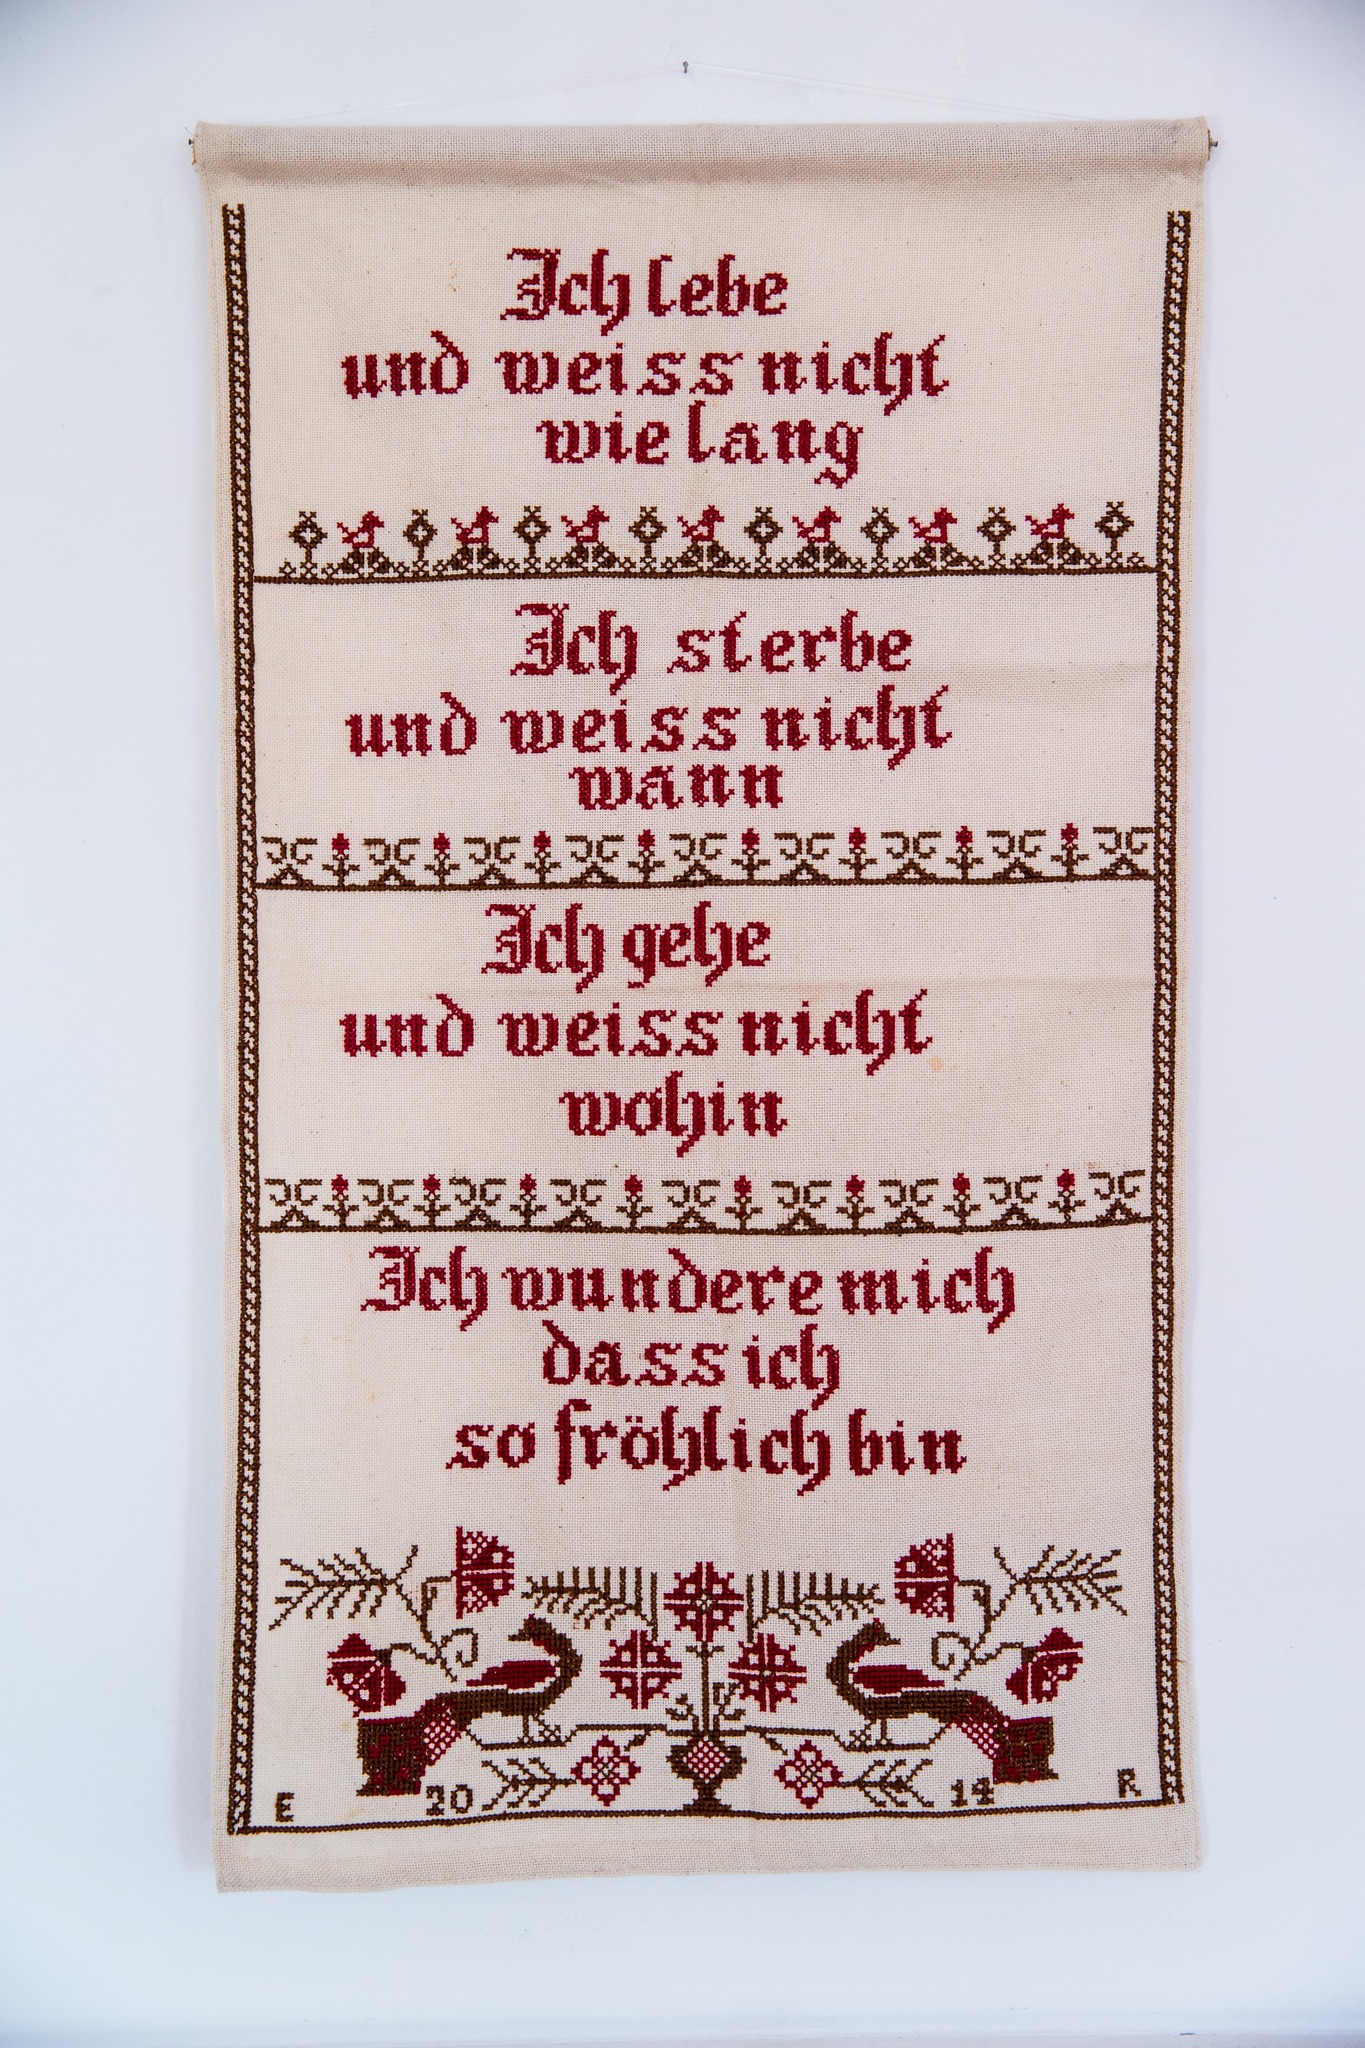 Ich lebe
und weiss nicht
wie lang
Ich sterbe
und weiss nicht
wann
Ich gehe
und weiss nicht
wohin
Ich wundere mich
dass ich
so fröhlich bin
E 20 14 R